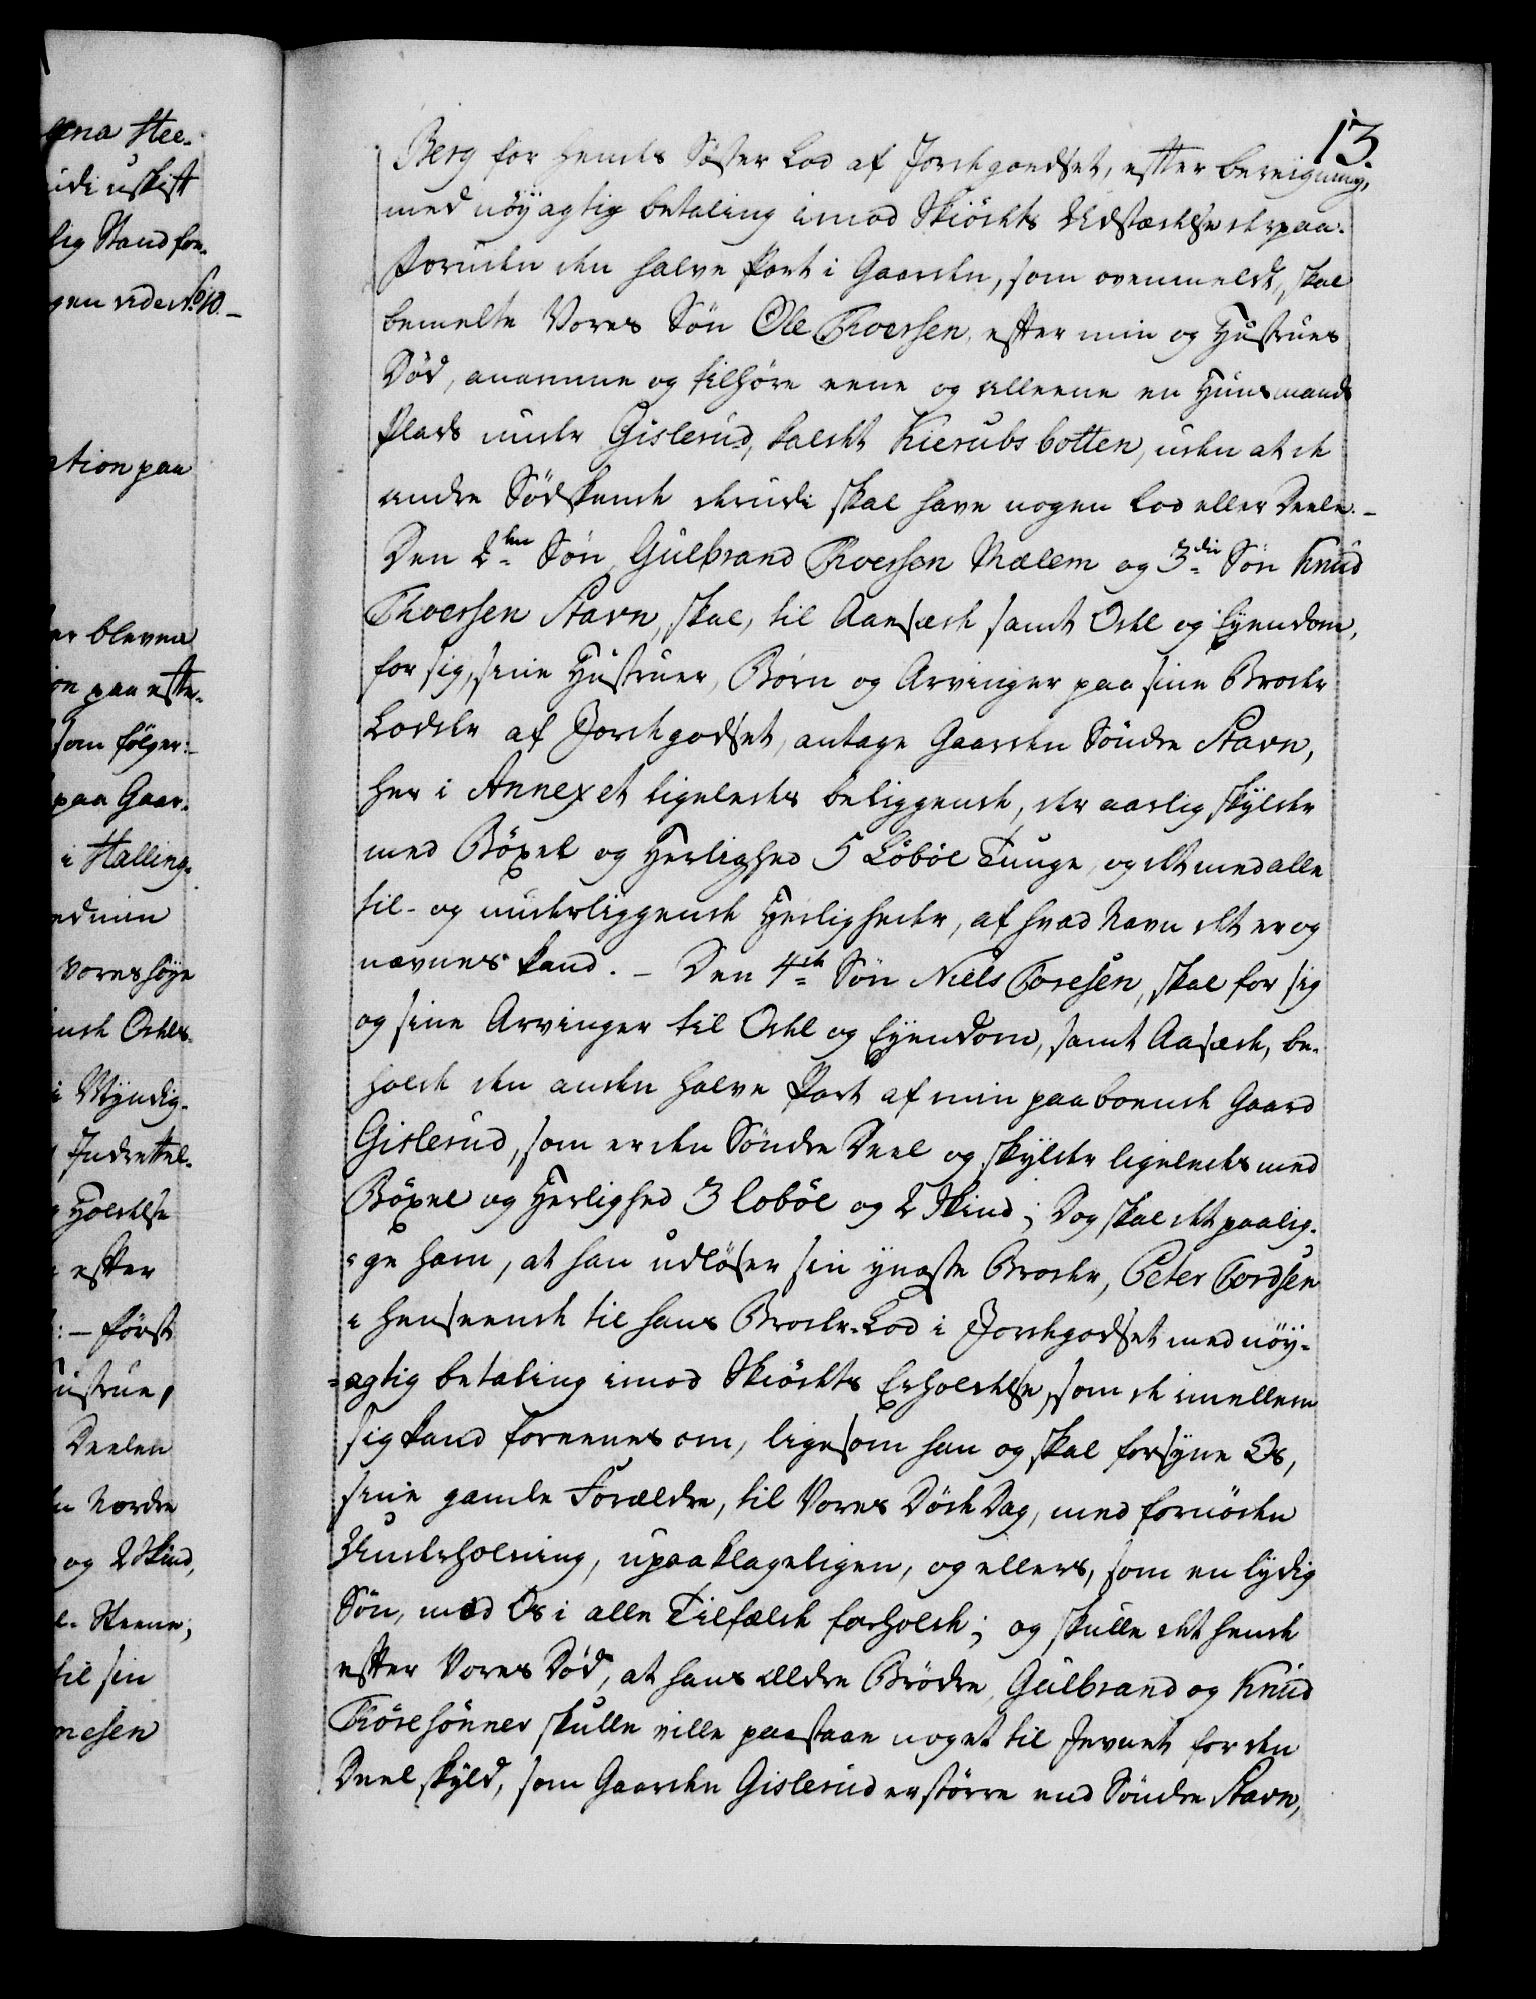 gna Stee-
idi uskift
lig Stand for-
gen vide No 10 –
ation paa
er blevne
on paa efter-
som fölger:–
paa Gaar-
i Halling-
ed min
Vores höye
inde Odels-
i Myndig-
Indrettel-
Holdelse
efter
:– först
ustrue,
Deelen
n Nordre
og 2 Skind,
e- Steene,
til sin
mesen
13.
Berg for hendes Söster Lod af Jordegoedset, efter bereigning,
med nöyagtig betaling imod Skiödets Udstædelse derpaa.
Foruden den halve Part i Gaarden, som ovenmeldt, skal
bemelte Vores Sön Ole Thoersen, efter min og Hustrues
Död, anamme og tilhöre eene og alleene en Huusmands
Plads under Gislerud, kaldet Kierubsbotten, uden at de
andre Södskende derudi skal have nogen Lod eller Deele. –
Den 2den Sön, Gulbrand Thoersen Mælem og 3die Sön Knud
Thoersen Stavn, skal, til Aasæde samt Odel og Eyendom,
for sig, sine Hustruer, Börn og Arvinger paa sine Broder
Lodder af Jordegodset, antage Gaarden Söndre Stavn,
her i Annexet ligeledes beliggende, der aarlig skylder
med Böxel og Herlighed 5 Löböl Tunge, og det med alle
til- og underliggende Herligheder, af hvad Navn det er og
nævnes kand. – Den 4de Sön Niels Toresen, skal for sig
og sine Arvinger til Odel og Eyendom, samt Aasæde, be-
holde den anden halve Part af min paaboende Gaard
Gislerud, som er den Söndre Deel og skylder ligeledes med
Böxel og Herlighed 3 Löböl og 2 Skind; Dog skal det paalig-
ge ham, at han udlöser sin yngste Broder, Peter Tordsen
i henseende til hans Broder-Lod i Jordegodset med nöy-
=agtig betaling imod Skiödets Erholdelse, som de imellem
sig kand foreenes om, ligesom han og skal forsyne Os,
sine gamle Forældre, til Vores Döde Dag, med fornöden
Underholdning, upaaklageligen, og ellers, som en lydig
Sön, mod Os i alle Tilfælde forholde; og skulle det hende
efter Vores Död, at hans ældre Brödre, Gulbrand og Knud
Thöresönner skulle ville paastaae noget til Jevnet for den
Deel skyld, som Gaarden Gislerud er större end Söndre Stavn,